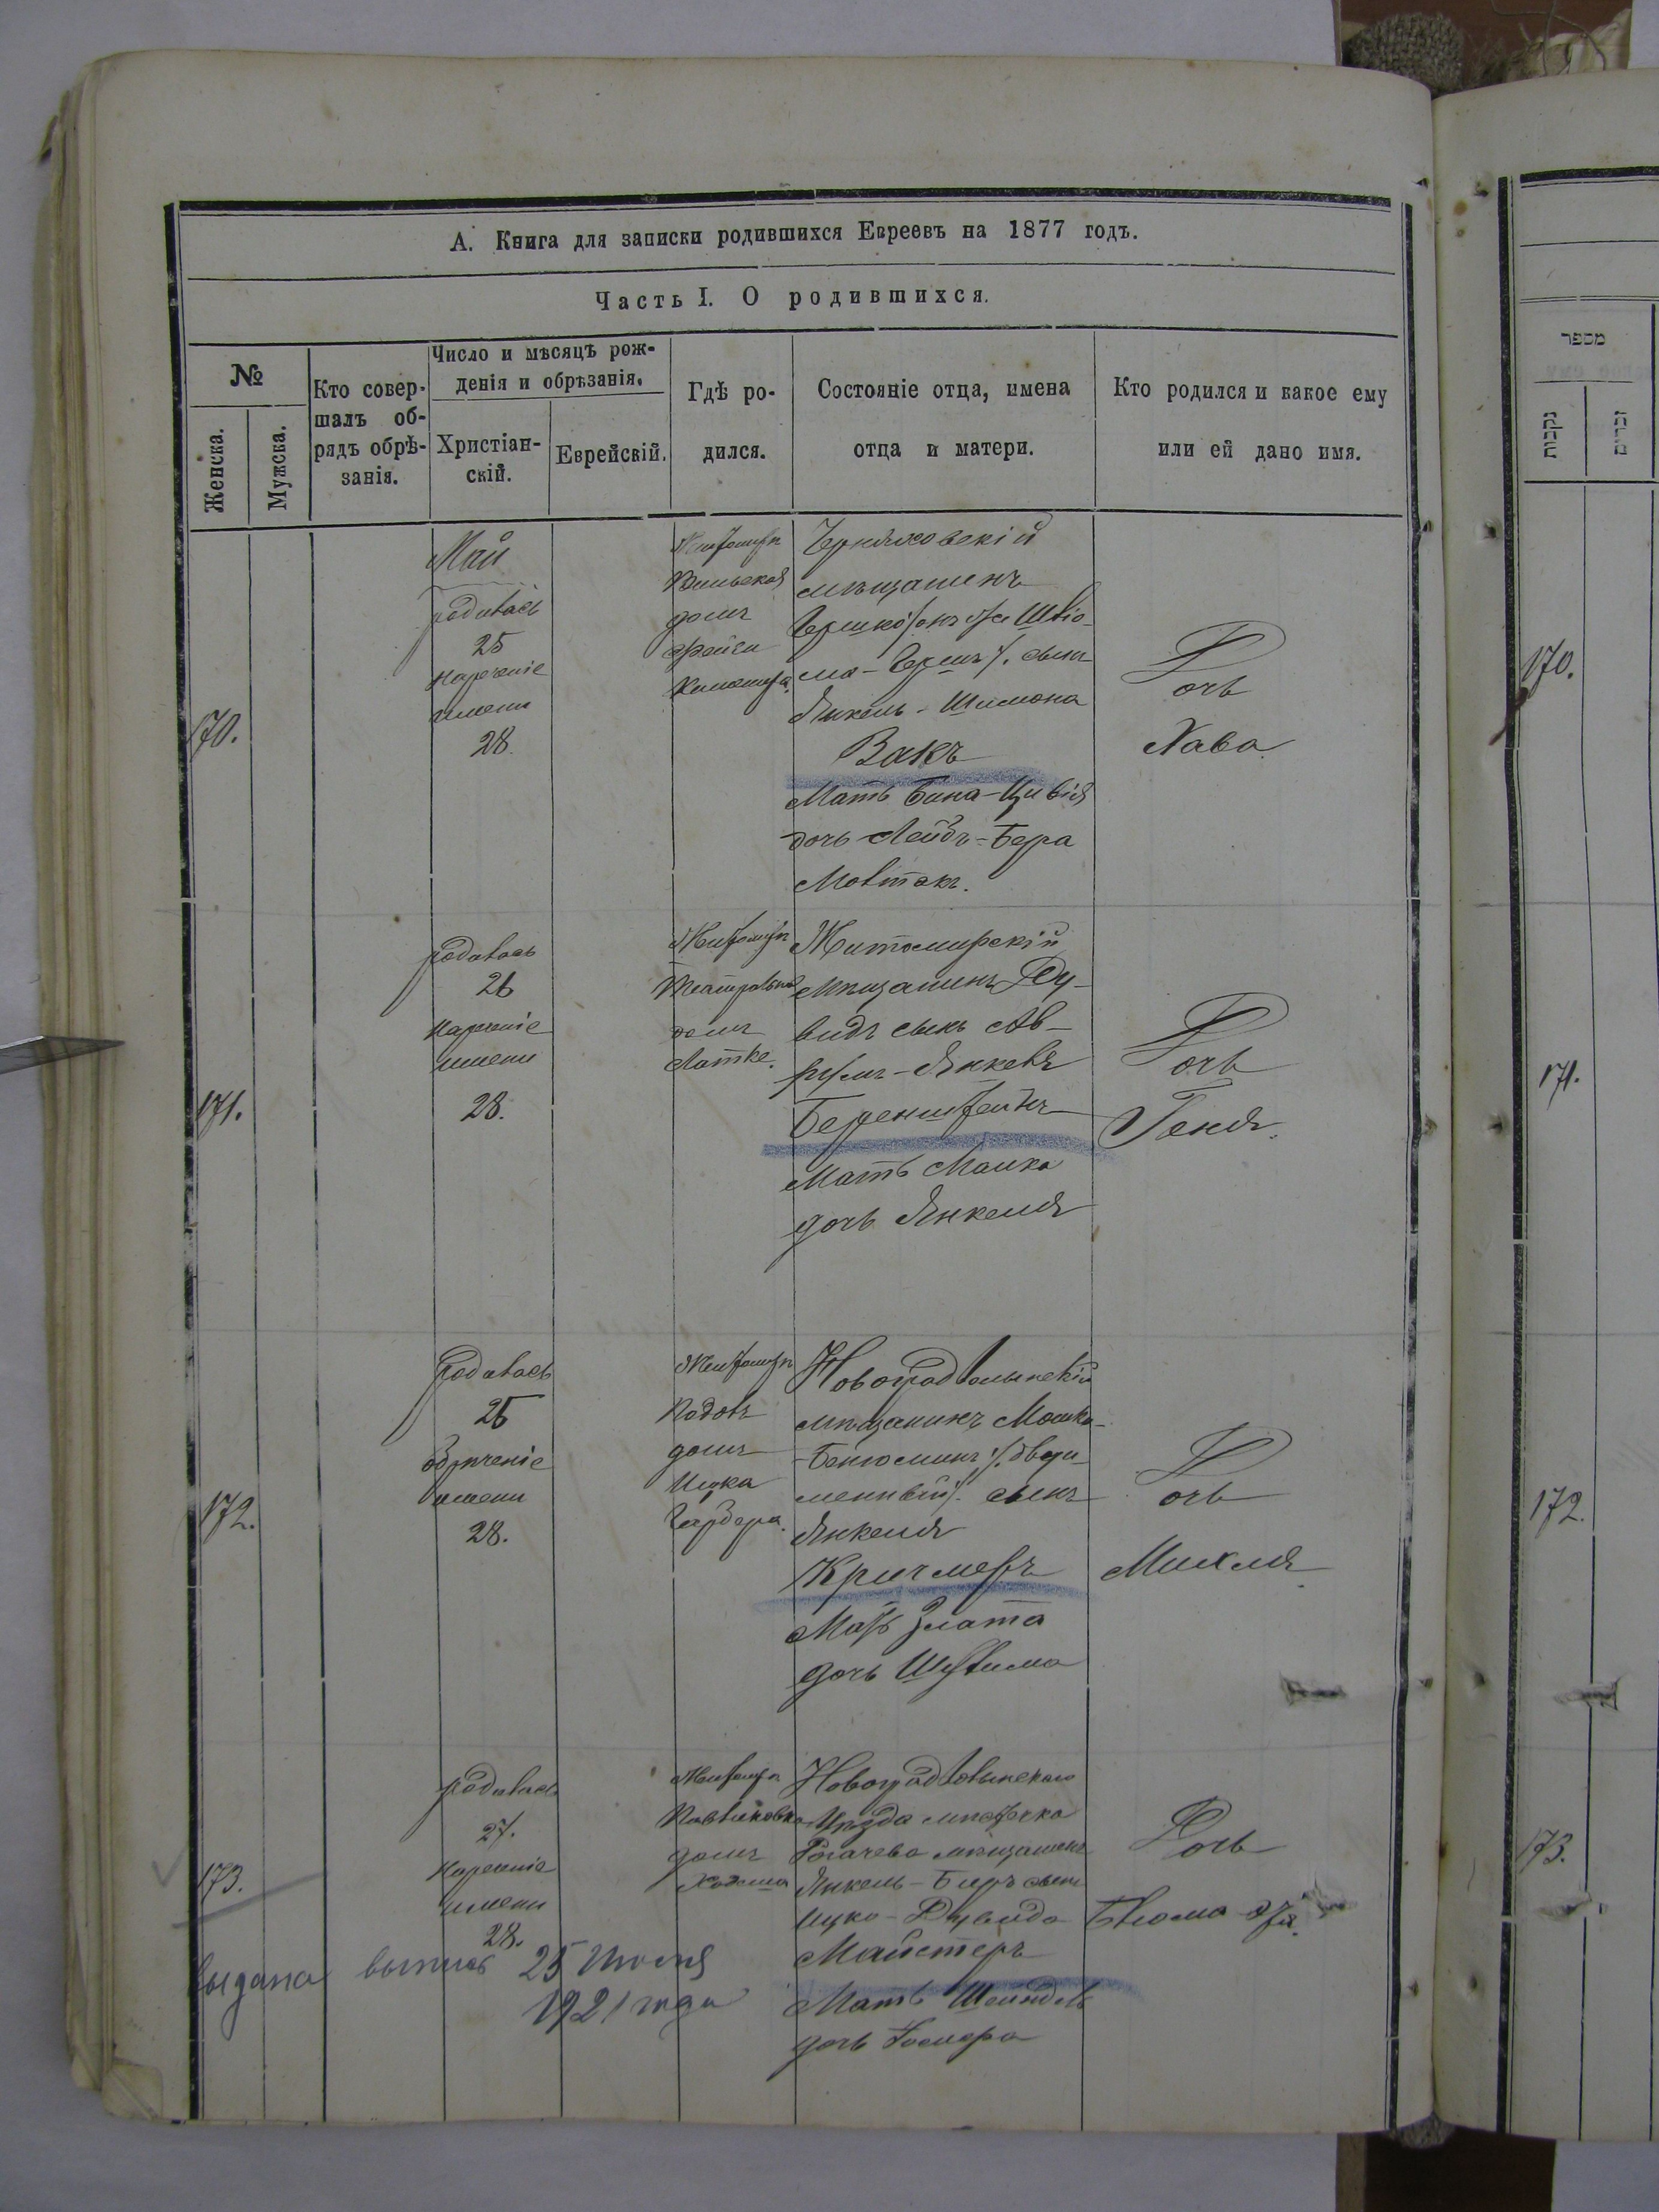 А. Книга для записки родившихся Евреевъ на 1877 годъ.
Часть I. О родившихся.
№
Женска.
Мужска.
Кто совер-
шалъ об-
рядъ обрѣ-
занія.
Число и мѣсяцъ рож-
денія и обрѣзанія.
Христіан-
скій.
Еврейскій.
Гдѣ ро-
дился.
Состояніе отца, имена
отца и матери.
Кто родился и какое ему
или ей дано имя.
170.
Май
родилась
25
нареченіе
имени
28.
Житомиръ
Вильская
домъ
Черняховскій
мѣщанинъ
сынъ
Янкель-Шимона
Вакъ
Мать Бина-Цивія
дочь Лейбъ-Бера
Дочь
Хава.
171.
родилась
26
нареченіе
имени
28.
Житомиръ
домъ
Житомирскій
мѣщанинъ Ду-
видъ сынъ Ав-
румъ-Янкеля
Беренштейнъ
Мать Малка
дочь Янкеля
Дочь
Геня.
172.
родилась
нареченіе
имени
28.
Житомиръ
домъ
Ицка
Новоградволынскій
мѣщанинъ Мошко-
сынъ
Янкеля
Кричмеръ
Мать Злата
дочь
Дочь
Михля
173.
родилась
27.
нареченіе
имени
28.
Житомиръ
Павликовка
домъ
Новоградволынскаго
Уѣзда мѣстечка
Рогачева мѣщанинъ
Янкель-Беръ сынъ
Ицко-Дувида
Майстеръ
Мать Шейндль
дочь
Дочь
Блюма
выдана выпись 25 Июля
1921 года
מספר
נקבות
זכרים
170.
171.
172.
173.